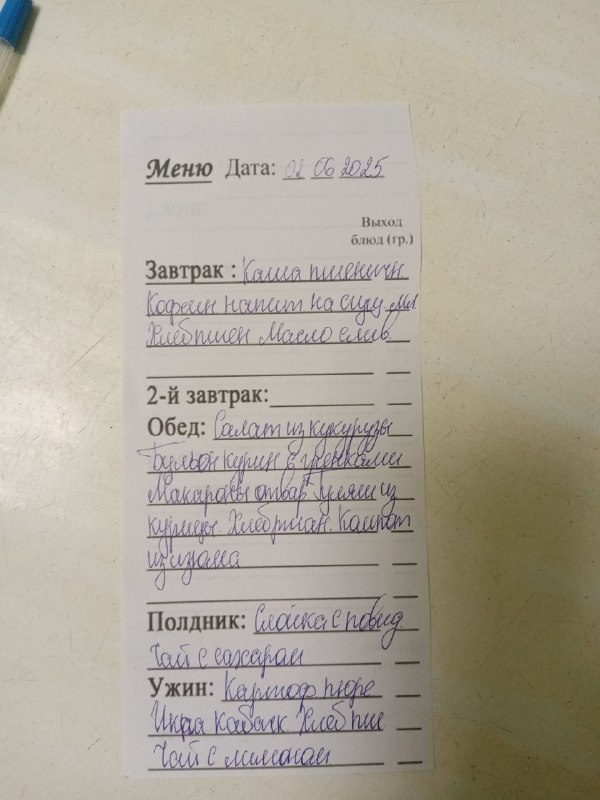 Меню Дата: 02 06 2025
Выход
блюд (гр.)
Завтрак : Каша пшеничн
Кофеин напит на сгущ мл
Хлеб пшен Масло слив
2-й завтрак:
Обед: Салат из кукурузы
Бульон курин с гренками
Макароны отвар Гуляш из
курицы. Хлеб ржан. Компот
из изюма
Полдник: Слойка с повид.
Чай с сахаром
Ужин: Картоф пюре
Икра кабачк. Хлеб пше
Чай с лимоном